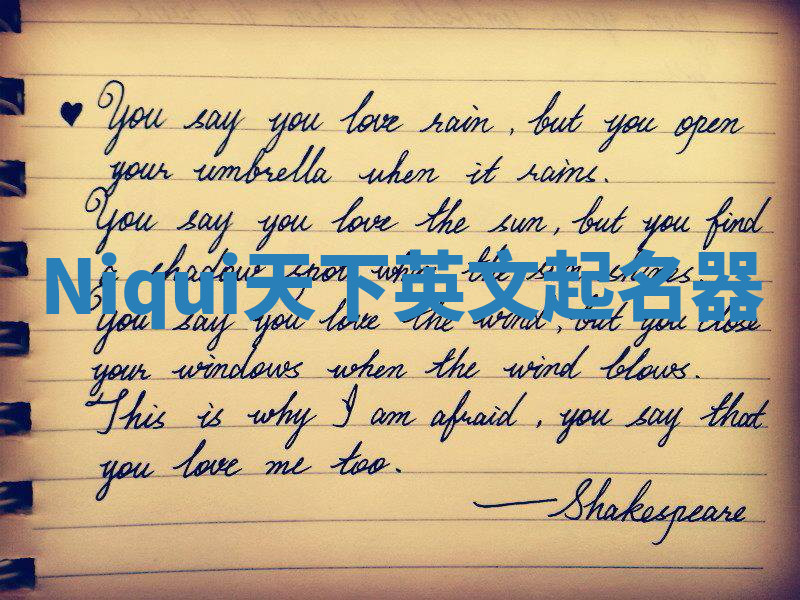 ♥ You say you love rain, but you open
your umbrella when it rains.
You say you love the sun, but you find
a shadow spot when the sun shines.
Niqui天下英文起名器
You say you love the wind, but you close
your windows when the wind blows.
This is why I am afraid, you say that
you love me too.
—Shakespeare